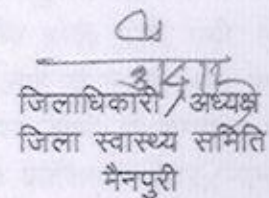 जिलाधिकारी/अध्यक्ष
जिला स्वास्थ्य समिति
मैनपुरी